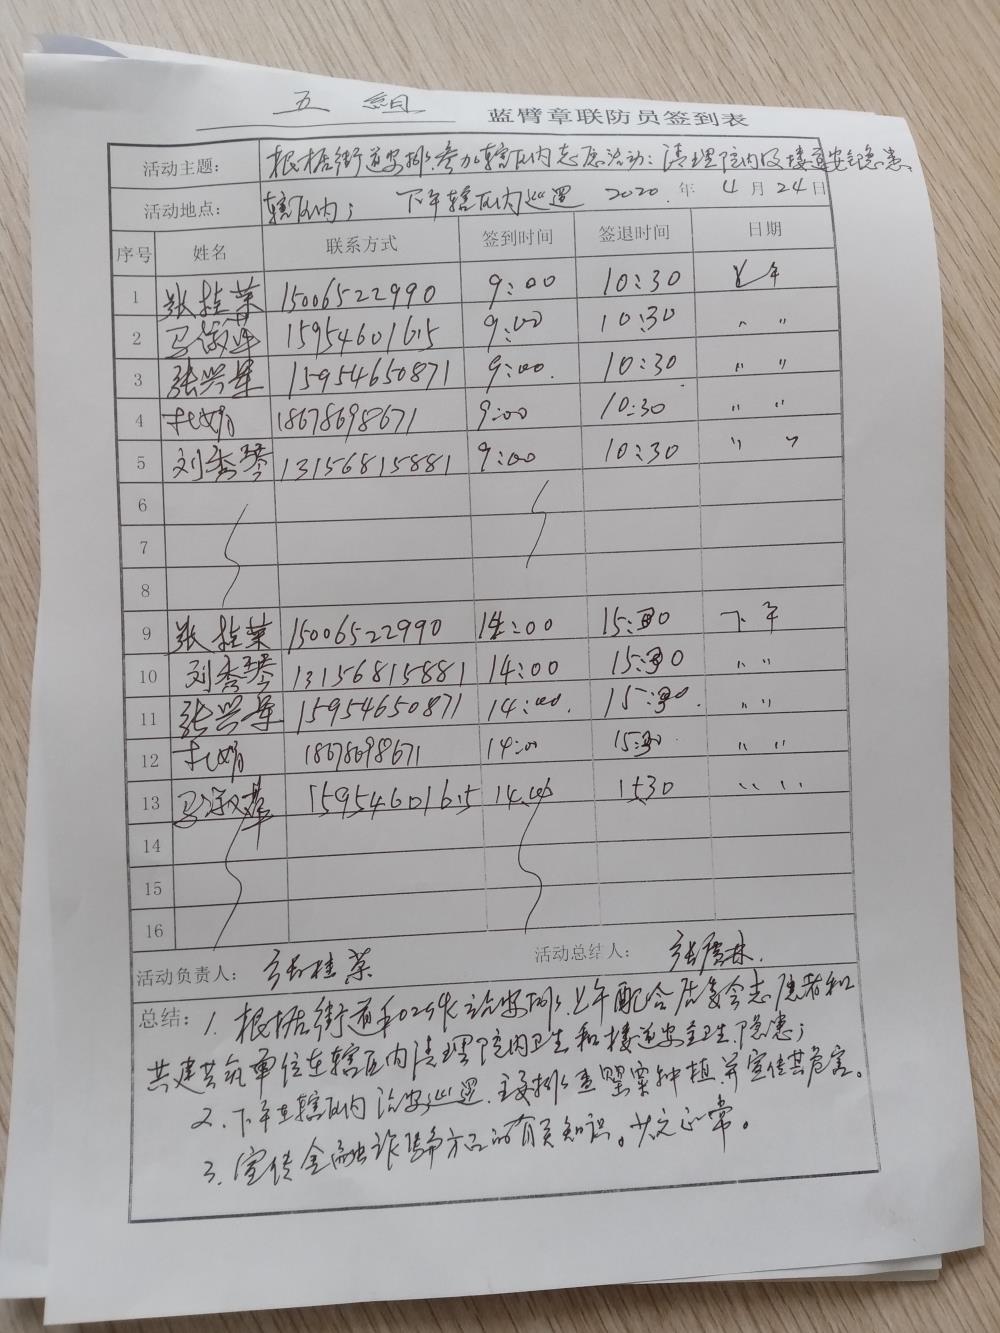 五 组 蓝臂章联防员签到表
活动主题: 根据街道安排:参加辖区内志愿活动:清理院内及楼道安全隐患
活动地点: 辖区内; 下午辖区内巡逻 2020年 4月24日
序号 姓名 联系方式 签到时间 签退时间 日期
1 张桂荣 15006522990 9:00 10:30 上午
2 马 15954601615 9:00 10:30 〃 〃
3 张兴军 15954650871 9:00. 10:30 〃 〃
4 杜娟 18678698671 9:00 10:30 〃 〃
5 刘秀琴 13156815881 9:00 10:30 〃 〃
6
7
8
9 张桂荣 15006522990 14:00 15:30 下午
10 刘秀琴 13156815881 14:00 15:30 〃 〃
11 张兴军 15954650871 14:00. 15:30. 〃 〃
12 杜娟 18678698671 14:0 15:30 〃 〃
13 马 15954601615 14.00 1530 〃 〃
14
15
16
活动负责人: 张桂荣 活动总结人:
总结: 1. 根据街道和 安排,上午配合居委会志愿者和
共建共筑单位在辖区内清理院内卫生和楼道安全卫生隐患;
2. 下午在辖区内治安巡逻.主要排查罂粟种植,并宣传其危害。
3. 宣传金融诈骗方面的有关知识。 正常。